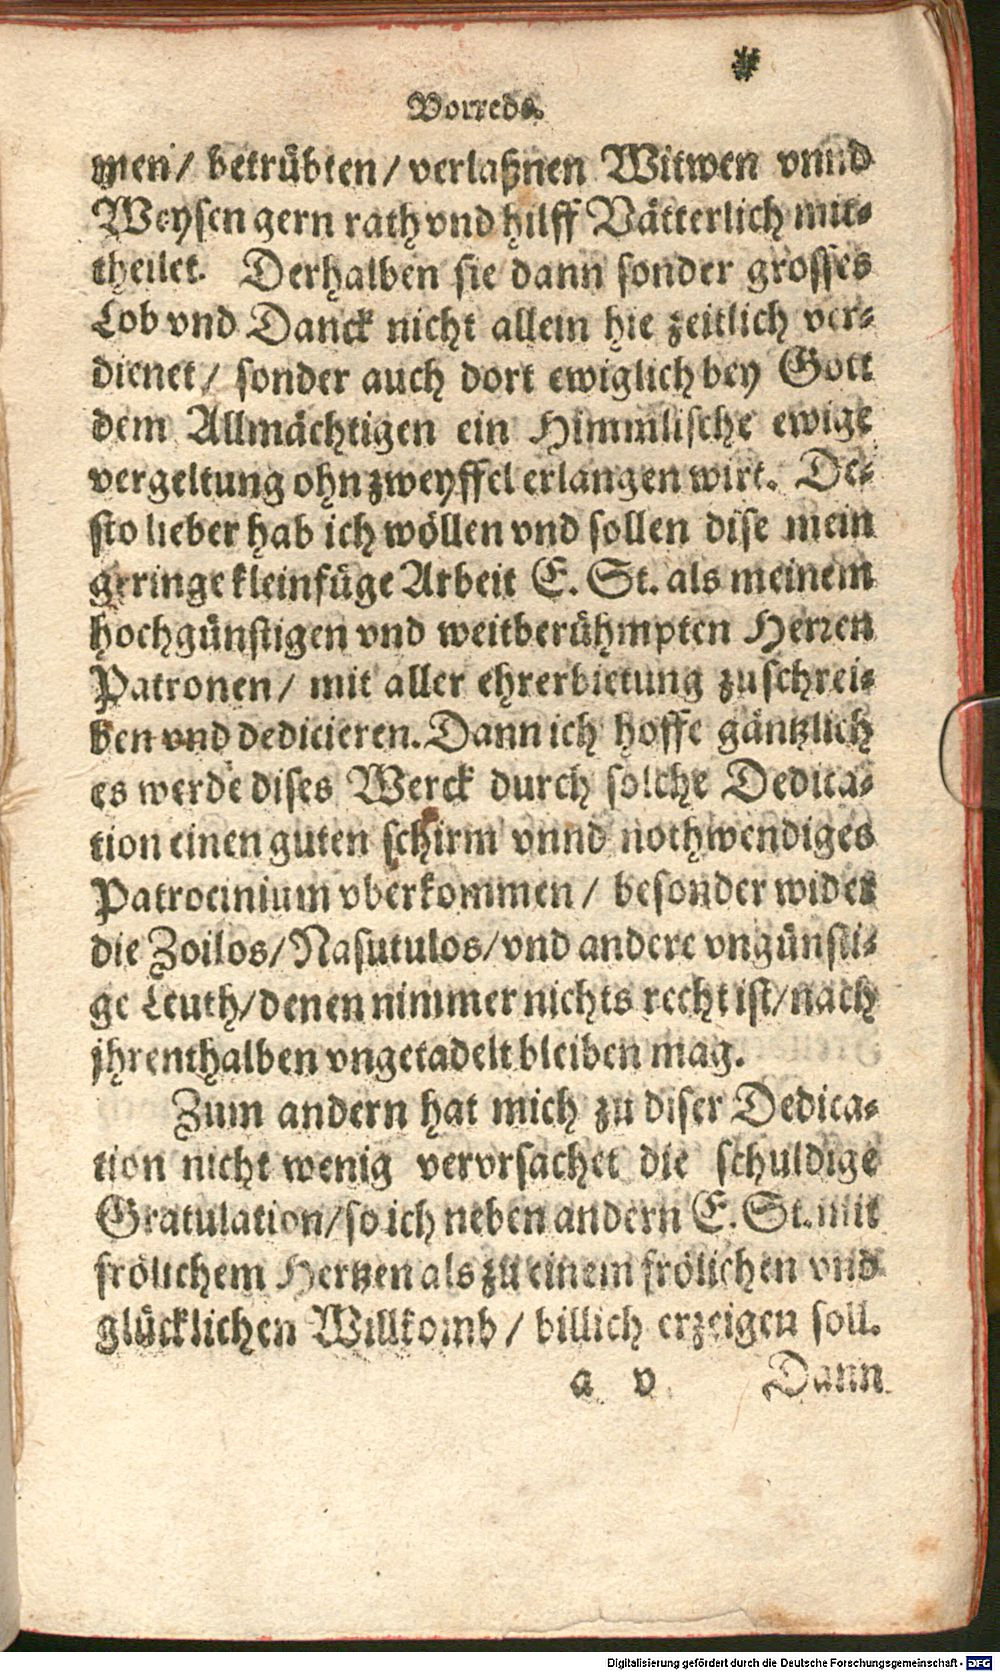 Vorrede.
men/ betrübten/ verlaßnen Witwen vnnd
Weysen gern rath vnd hilff Vätterlich mit-
theilet. Derhalben sie dann sonder grosses
Lob vnd Danck nicht allein hie zeitlich ver-
dienet/ sonder auch dort ewiglich bey Gott
dem Allmächtigen ein Himmlische ewige
vergeltung ohn zweyffel erlangen wirt. De-
sto lieber hab ich wöllen vnd sollen dise mein
geringe kleinfüge Arbeit E. St. als meinem
hochgünstigen vnd weitberühmpten Herren
Patronen/ mit aller ehrerbietung zuschrei-
ben vnd dedicieren. Dann ich hoffe gäntzlich
es werde dises Werck durch solche Dedica-
tion einen guten schirm vnnd nothwendiges
Patrocinium vberkommen/ besonder wider
die Zoilos/ Nasutulos/ vnd andere vngünsti-
ge Leuth/ denen nimmer nichts recht ist/ nach
jhrenthalben vngetadelt bleiben mag.
Zum andern hat mich zu diser Dedica-
tion nicht wenig vervrsachet die schuldige
Gratulation/ so ich neben andern E. St. mit
frölichem Hertzen als zu einem frölichen vnd
glücklichen Willkomb/ billich erzeigen soll.
a v Dann
Digitalisierung gefördert durch die Deutsche Forschungsgemeinschaft - DFG